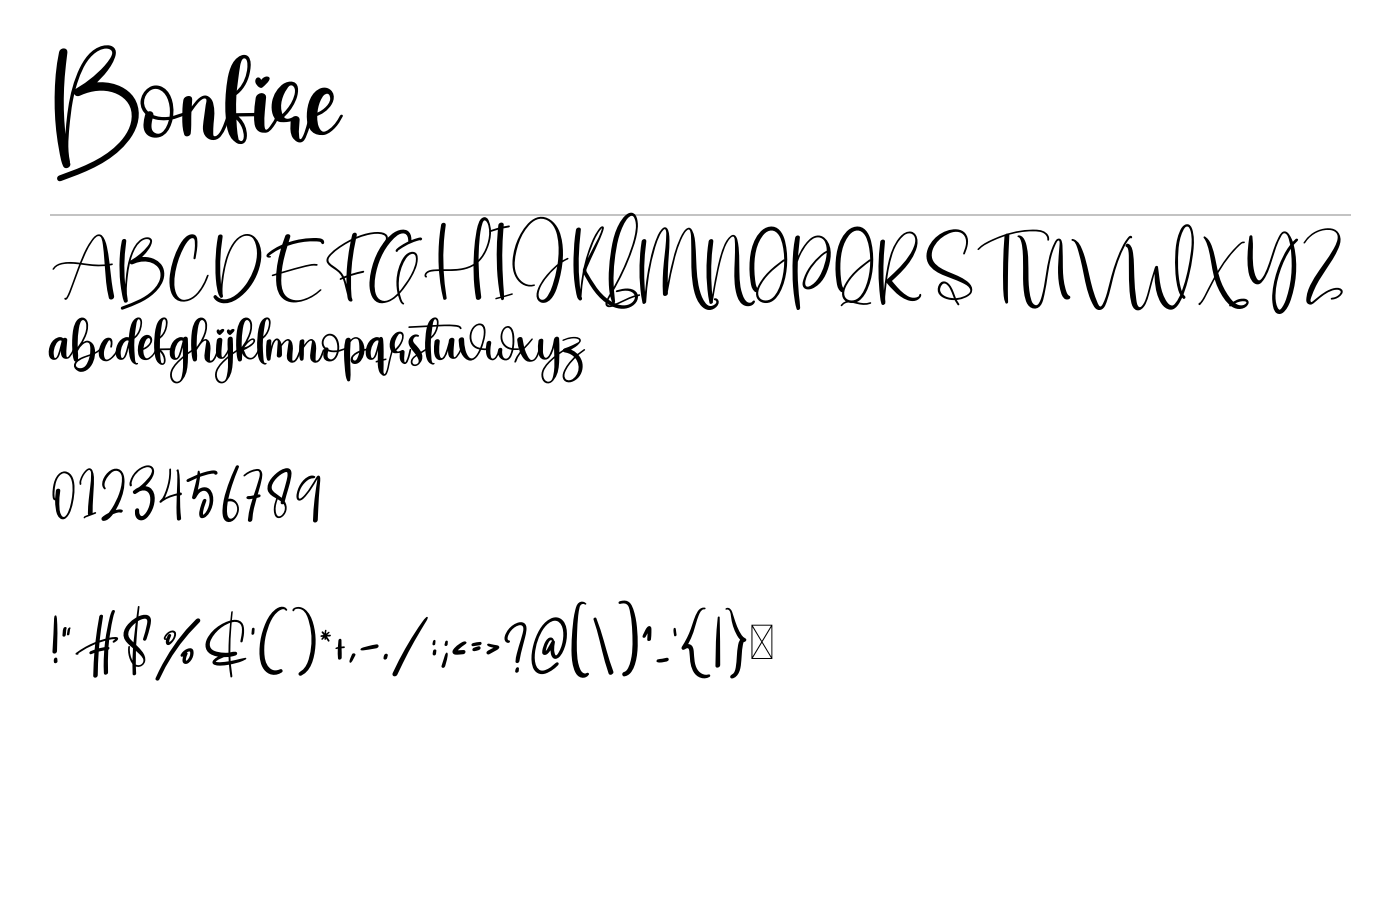 Bonfire
ABCDEFGHIJKLMNOPQRSTUVWXYZ
abcdefghijklmnopqrstuvwxyz
0123456789
!"#$%&'()*+,-./:;<=>?@[\]^_`{|}